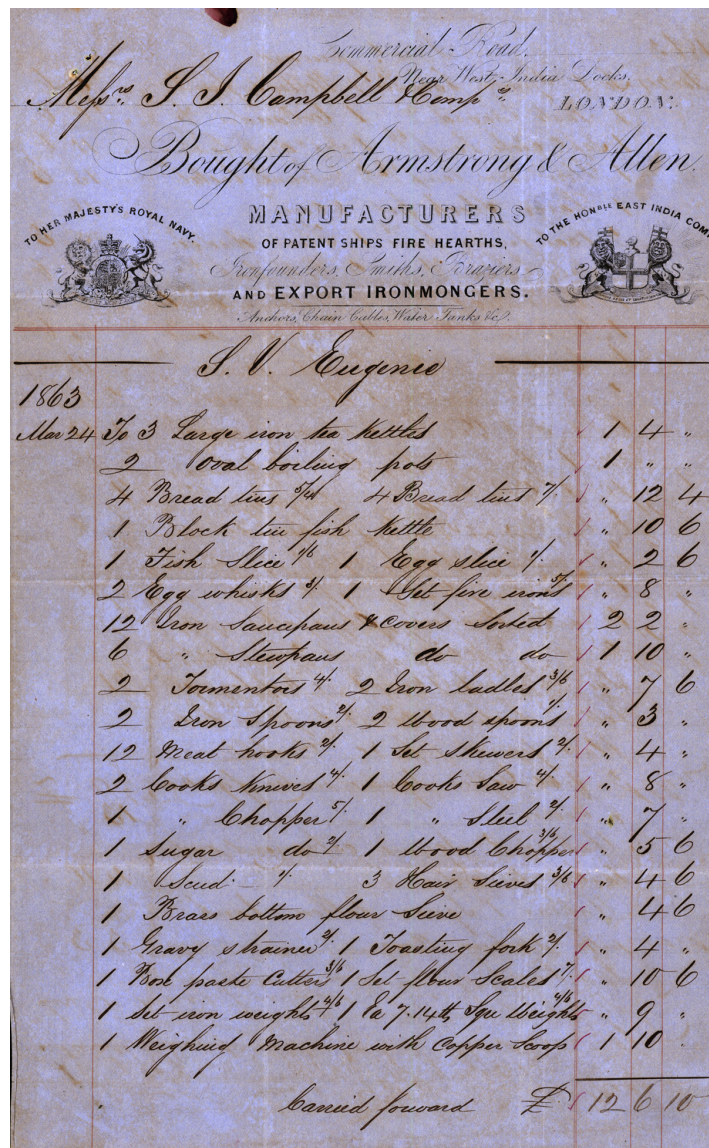 Commercial Road.
Near West India Docks.
LONDON.
Messrs. S. I. Campbell & Comp
Bought of Armstrong & Allen.
TO HER MAJESTY'S ROYAL NAVY.
TO THE HONBLE EAST INDIA COM
MANUFACTURERS
OF PATENT SHIPS FIRE HEARTHS,
Ironfounders, Smiths, Braziers
AND EXPORT IRONMONGERS.
Anchors, Chain Cables, Water Tanks &c.
S. V. Eugenie
1863
Mar 24 To 3 Large iron tea Kettles 1 4 "
2 Oval boiling pots 1 " "
4 Bread tins 5/4 4 Bread tins 7/. " 12 4
1 Block tin fish Kettle " 10 6
1 Fish Slice 1/6 1 Egg slice 1/. " 2 6
2 Egg whisks 3/. 1 Set fire irons 5/. " 8 "
12 Iron Saucepans & covers Sorted 2 2 "
6 " Stewpans do do 1 10 "
2 Tormentors 4/. 2 Iron ladles 3/6 " 7 6
2 Iron Spoons 2/. 2 Wood spoons 1/. " 3 "
12 Meat hooks 2/. 1 Set Skewers 2/. " 4 "
2 Cooks Knives 4/. 1 Cooks Saw 4/. " 8 "
1 " Chopper 5/. 1 " Steel 2/. " 7 "
1 Sugar do 2/. 1 Wood Chopper 3/6 " 5 6
1 1/. 3 Hair Sieves 3/6 " 4 6
1 Brass bottom flour Sieve " 4 6
1 Gravy strainer 2/. 1 Toasting fork 2/. " 4 "
1 Box paste Cutters 3/6 1 Set flour Scales 7/. " 10 6
1 Set iron weights 4/6 1 Ea 7.14 Squ Weights 4/6 " 9 "
1 Weighing Machine with Copper Scoop 1 10 "
Carried forward £ 12 6 10